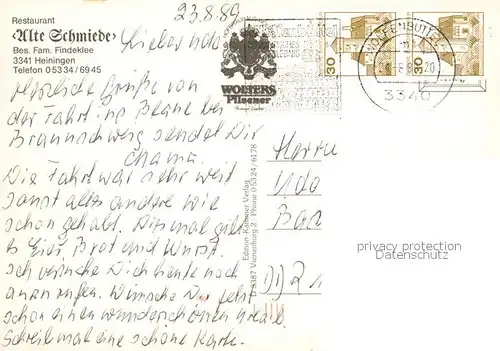 Restaurant
»Alte Schmiede«
Bes. Fam. Findeklee
3341 Heiningen
Telefon 0 53 34 / 69 45
23.8.89
Lieber Udo
WOLTERS
Pilsener
30
30
WOLFENBÜTTEL
3340
Herzliche Grüße von
der Fahrt ins Blaue bei
Braunschweig sendet Dir
Mama.
Die Fahrt war sehr weit
sonst alles andere wie
schon gehabt. Diesmal gibt
es Eier, Brot und Wurst.
Ich versuche Dich heute noch
anzurufen. Wünsche Dir jetzt
schon einen wunderschönen
Schreib mal eine schöne Karte.
Edition Kämmer Verlag
D 3387 Vienenburg 2 - Phone 0 53 24 / 61 78
Herrn
Udo
privacy protection
AK-Ansichtskarten.de